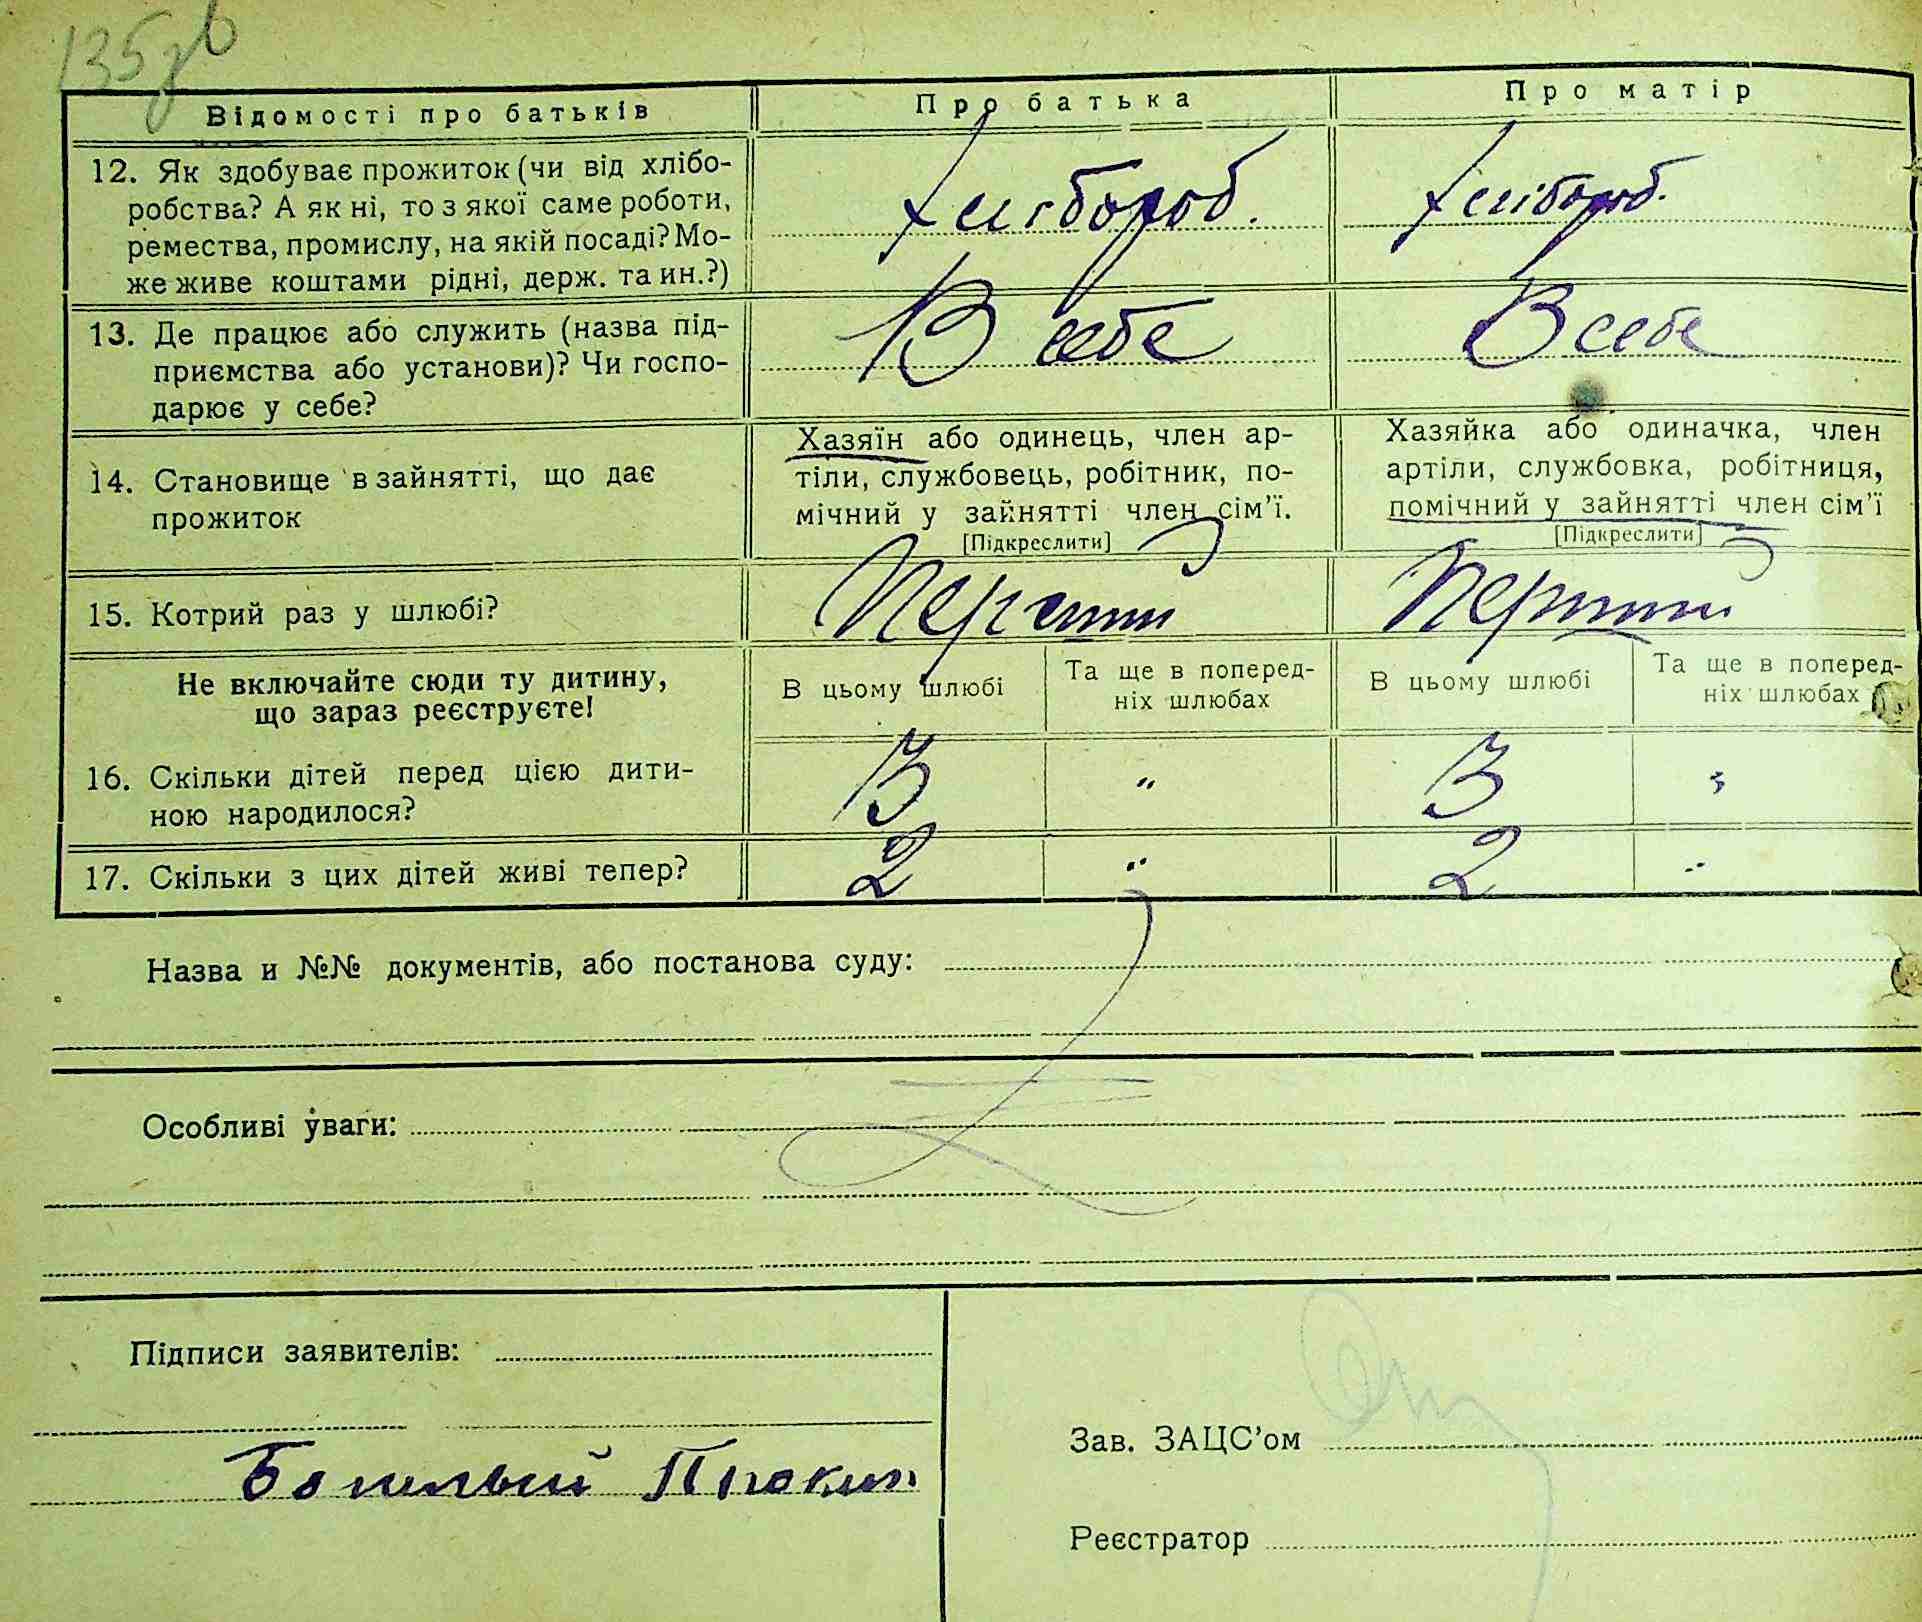 135зв
Відомості про батьків
Про батька
Про матір
12. Як здобуває прожиток (чи від хлібо-
робства? А як ні, то з якої саме роботи,
ремества, промислу, на якій посаді? Мо-
же живе коштами рідні, держ. та ин.?)
хлібороб.
хлібороб.
13. Де працює або служить (назва під-
приємства або установи)? Чи госпо-
дарює у себе?
В себе
В себе
14. Становище в зайнятті, що дає
прожиток
Хазяїн або одинець, член ар-
тіли, службовець, робітник, по-
мічний у зайнятті член сім'ї.
[Підкреслити]
Хазяйка або одиначка, член
артіли, службовка, робітниця,
помічний у зайнятті член сім'ї
[Підкреслити]
15. Котрий раз у шлюбі?
Перший
Перший
Не включайте сюди ту дитину,
що зараз реєструєте!
В цьому шлюбі
Та ще в поперед-
ніх шлюбах
В цьому шлюбі
Та ще в поперед-
ніх шлюбах
16. Скільки дітей перед цією дити-
ною народилося?
3
"
3
"
17. Скільки з цих дітей живі тепер?
2
"
2
"
Назва и №№ документів, або постанова суду:
Особливі уваги:
Підписи заявителів:
Зав. ЗАЦС'ом
Реєстратор